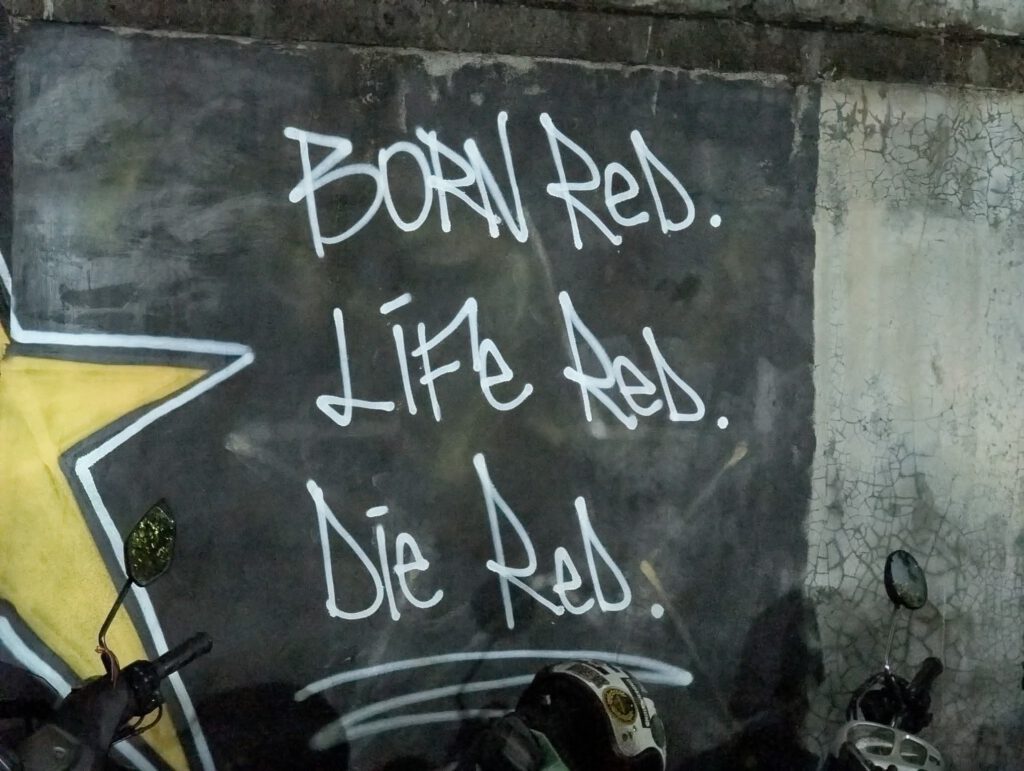 BORN ReD.
LiFe ReD.
Die ReD.